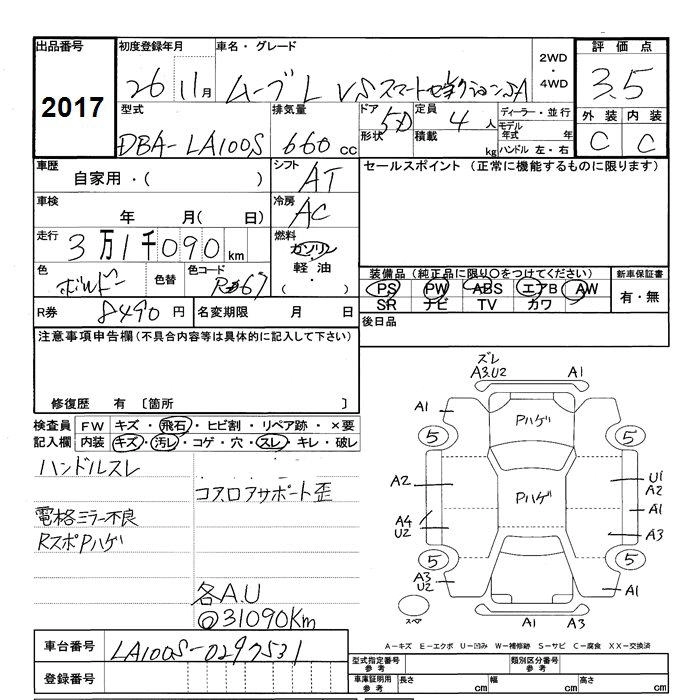 出品番号 初度登録年月 車名・グレード 2WD・4WD 評価点
2017 26 11月 ムーブL VSスマートセレクションSA 3.5
型式 排気量 ドア 形状 定員 積載 ディーラー・並行 外装 内装
DBA-LA100S 660cc 5D 4人 kg モデル年式 年 ハンドル 左・右 C C
車歴 シフト セールスポイント (正常に機能するものに限ります)
自家用・( ) AT
車検 冷房
年 月( 日) AC
走行 燃料
3万1千090km ガソリン・軽油・( )
色 色替 色コード 装備品 (純正品に限り○をつけてください) 新車保証書
R67 PS PW ABS エアB AW 有・無
SR ナビ TV カワ
R券 8490円 名変期限 月 日 後日品
注意事項申告欄(不具合内容等は具体的に記入して下さい)
修復歴 有 〔箇所 〕
検査員 FW キズ・飛石・ヒビ割・リペア跡・×要
記入欄 内装 キズ・汚レ・コゲ・穴・スレ・キレ・破レ
ハンドルスレ
コアロアサポート歪
電格ミラー不良
RスポPハゲ
各A.U
@31090Km
ズレ
A3.U2 A1
A1 Pハゲ
5 5
A2 Pハゲ U1
A2
A1
A4
U2 A3
5 5
A3
U2 A1
スペア A1 A3
A-キズ E-エクボ U-凹み W-補修跡 S-サビ C-腐食 XX-交換済
車台番号 LA100S-0297531
登録番号
型式指定番号 参考 類別区分番号 参考
車庫証明用 参考 長さ cm 幅 cm 高さ cm